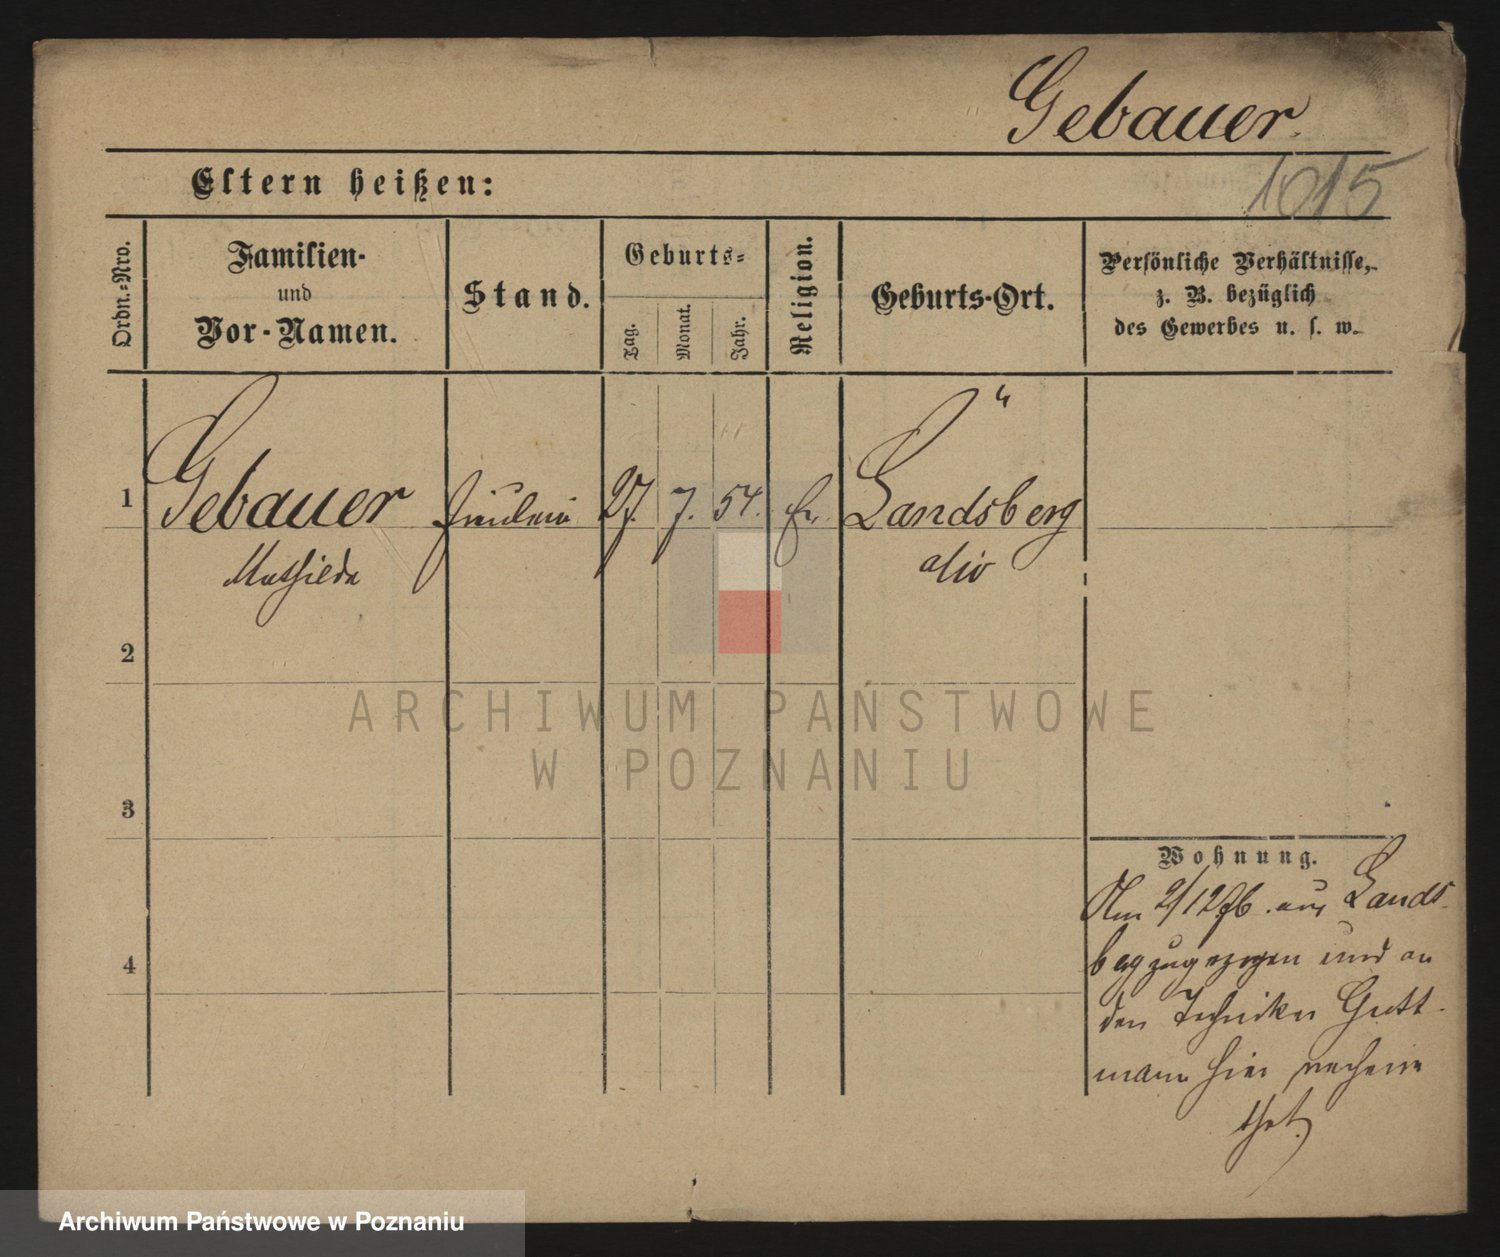 Gebauer.
1015
Eltern heißen:
Ordn.-Nro.
Familien-
und
Vor-Namen.
Stand.
Geburts-
Tag.
Monat.
Jahr.
Religion.
Geburts-Ort.
Persönliche Verhältnisse,
z. B. bezüglich
des Gewerbes u. s. w.
1
Gebauer
Mathilde
Fräulein
27.
7.
54.
Landsberg
2
3
4
Wohnung.
Am 2/12 76. aus Lands-
berg zugezogen und an
den Techniker Gutt-
mann hier verheira
thet.
ARCHIWUM PAŃSTWOWE
W POZNANIU
Archiwum Państwowe w Poznaniu